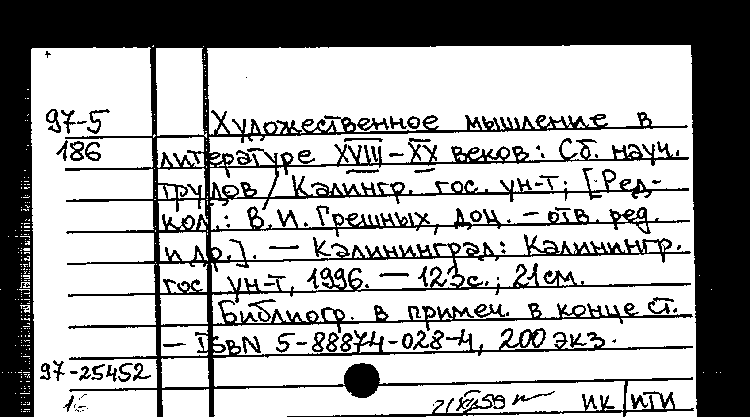 97-5 Художественное мышление в
186 литературе XVIII – XX веков: Сб. науч.
трудов / Калингр. гос. ун-т; [Ред-
кол.: В.И. Грешных, доц. – отв. ред.
и др.]. — Калининград: Калинингр.
гос. ун-т, 1996. — 123с.; 21см.
Библиогр. в примеч. в конце ст.
— ISBN 5-88874-028-4, 200 экз.
97-25452
16 ИК ИТИ